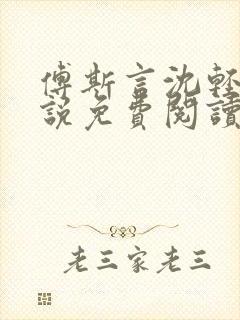 傅斯言沈輕
說免費閱讀
老三家老三